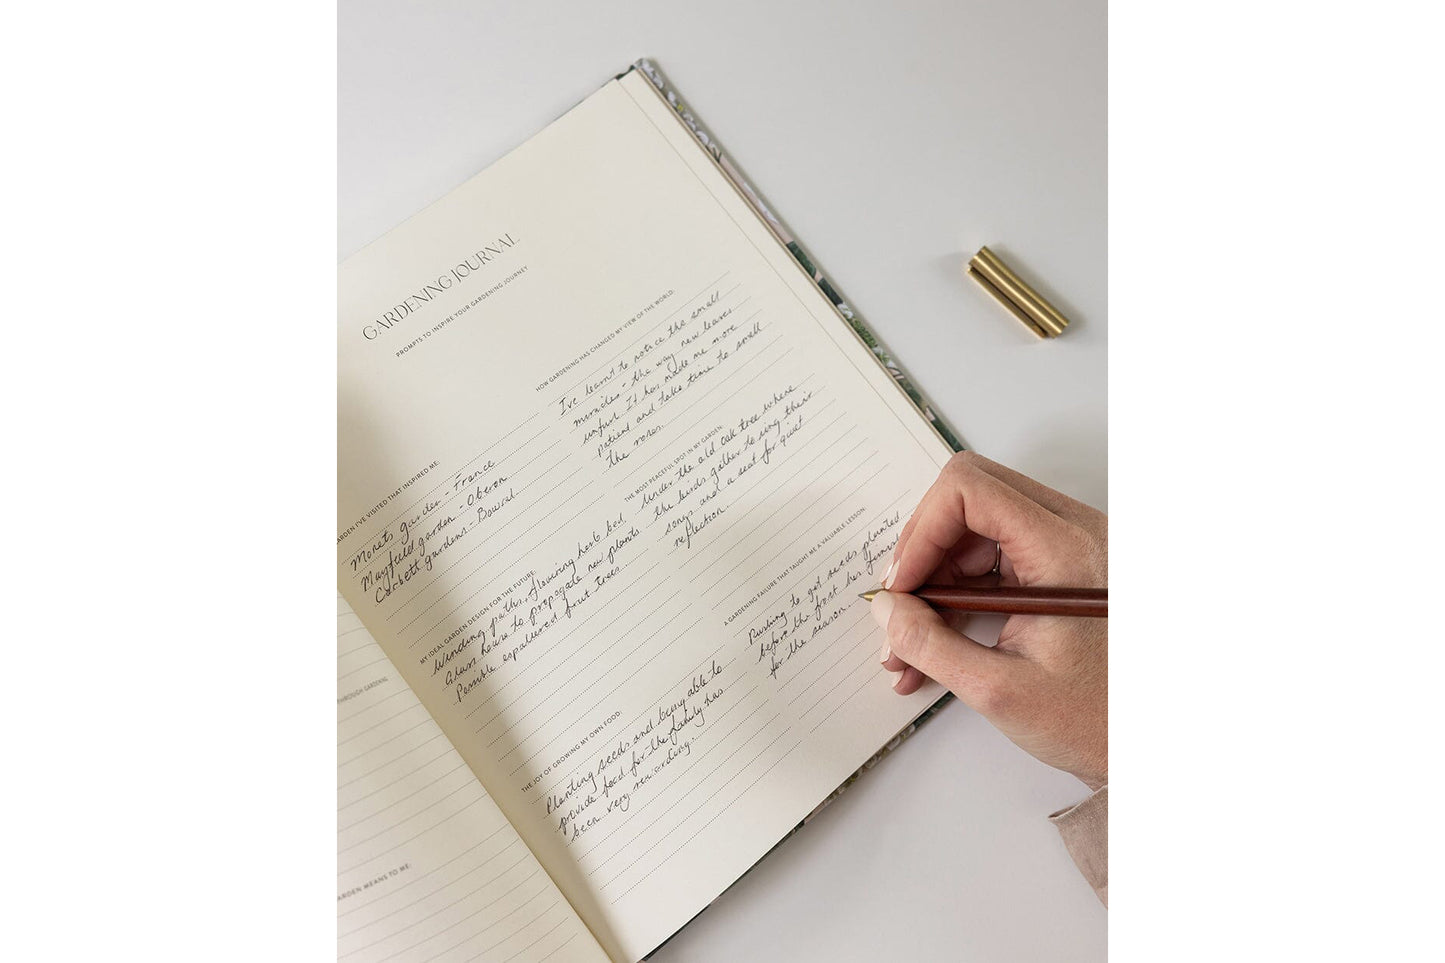 GARDENING JOURNAL
PROMPTS TO INSPIRE YOUR GARDENING JOURNEY
GARDEN I'VE VISITED THAT INSPIRED ME:
Monets garden - France
Mayfield garden - Oberon
Corbett gardens - Bowral
MY IDEAL GARDEN DESIGN FOR THE FUTURE:
Winding paths, flowering herb bed
Glass house to propogate new plants
Possible espaliered fruit trees
THE JOY OF GROWING MY OWN FOOD:
Planting seeds and being able to
provide food for the family has
been very rewarding.
HOW GARDENING HAS CHANGED MY VIEW OF THE WORLD:
I've learnt to notice the small
miracles - the way new leaves
unfurl. It has made me more
patient and take time to smell
the roses.
THE MOST PEACEFUL SPOT IN MY GARDEN:
Under the old oak tree where
the birds gather to sing their
songs and a seat for quiet
reflection.
A GARDENING FAILURE THAT TAUGHT ME A VALUABLE LESSON:
Rushing to get seeds planted
before the frost has
for the season.
THROUGH GARDENING
GARDEN MEANS TO ME: